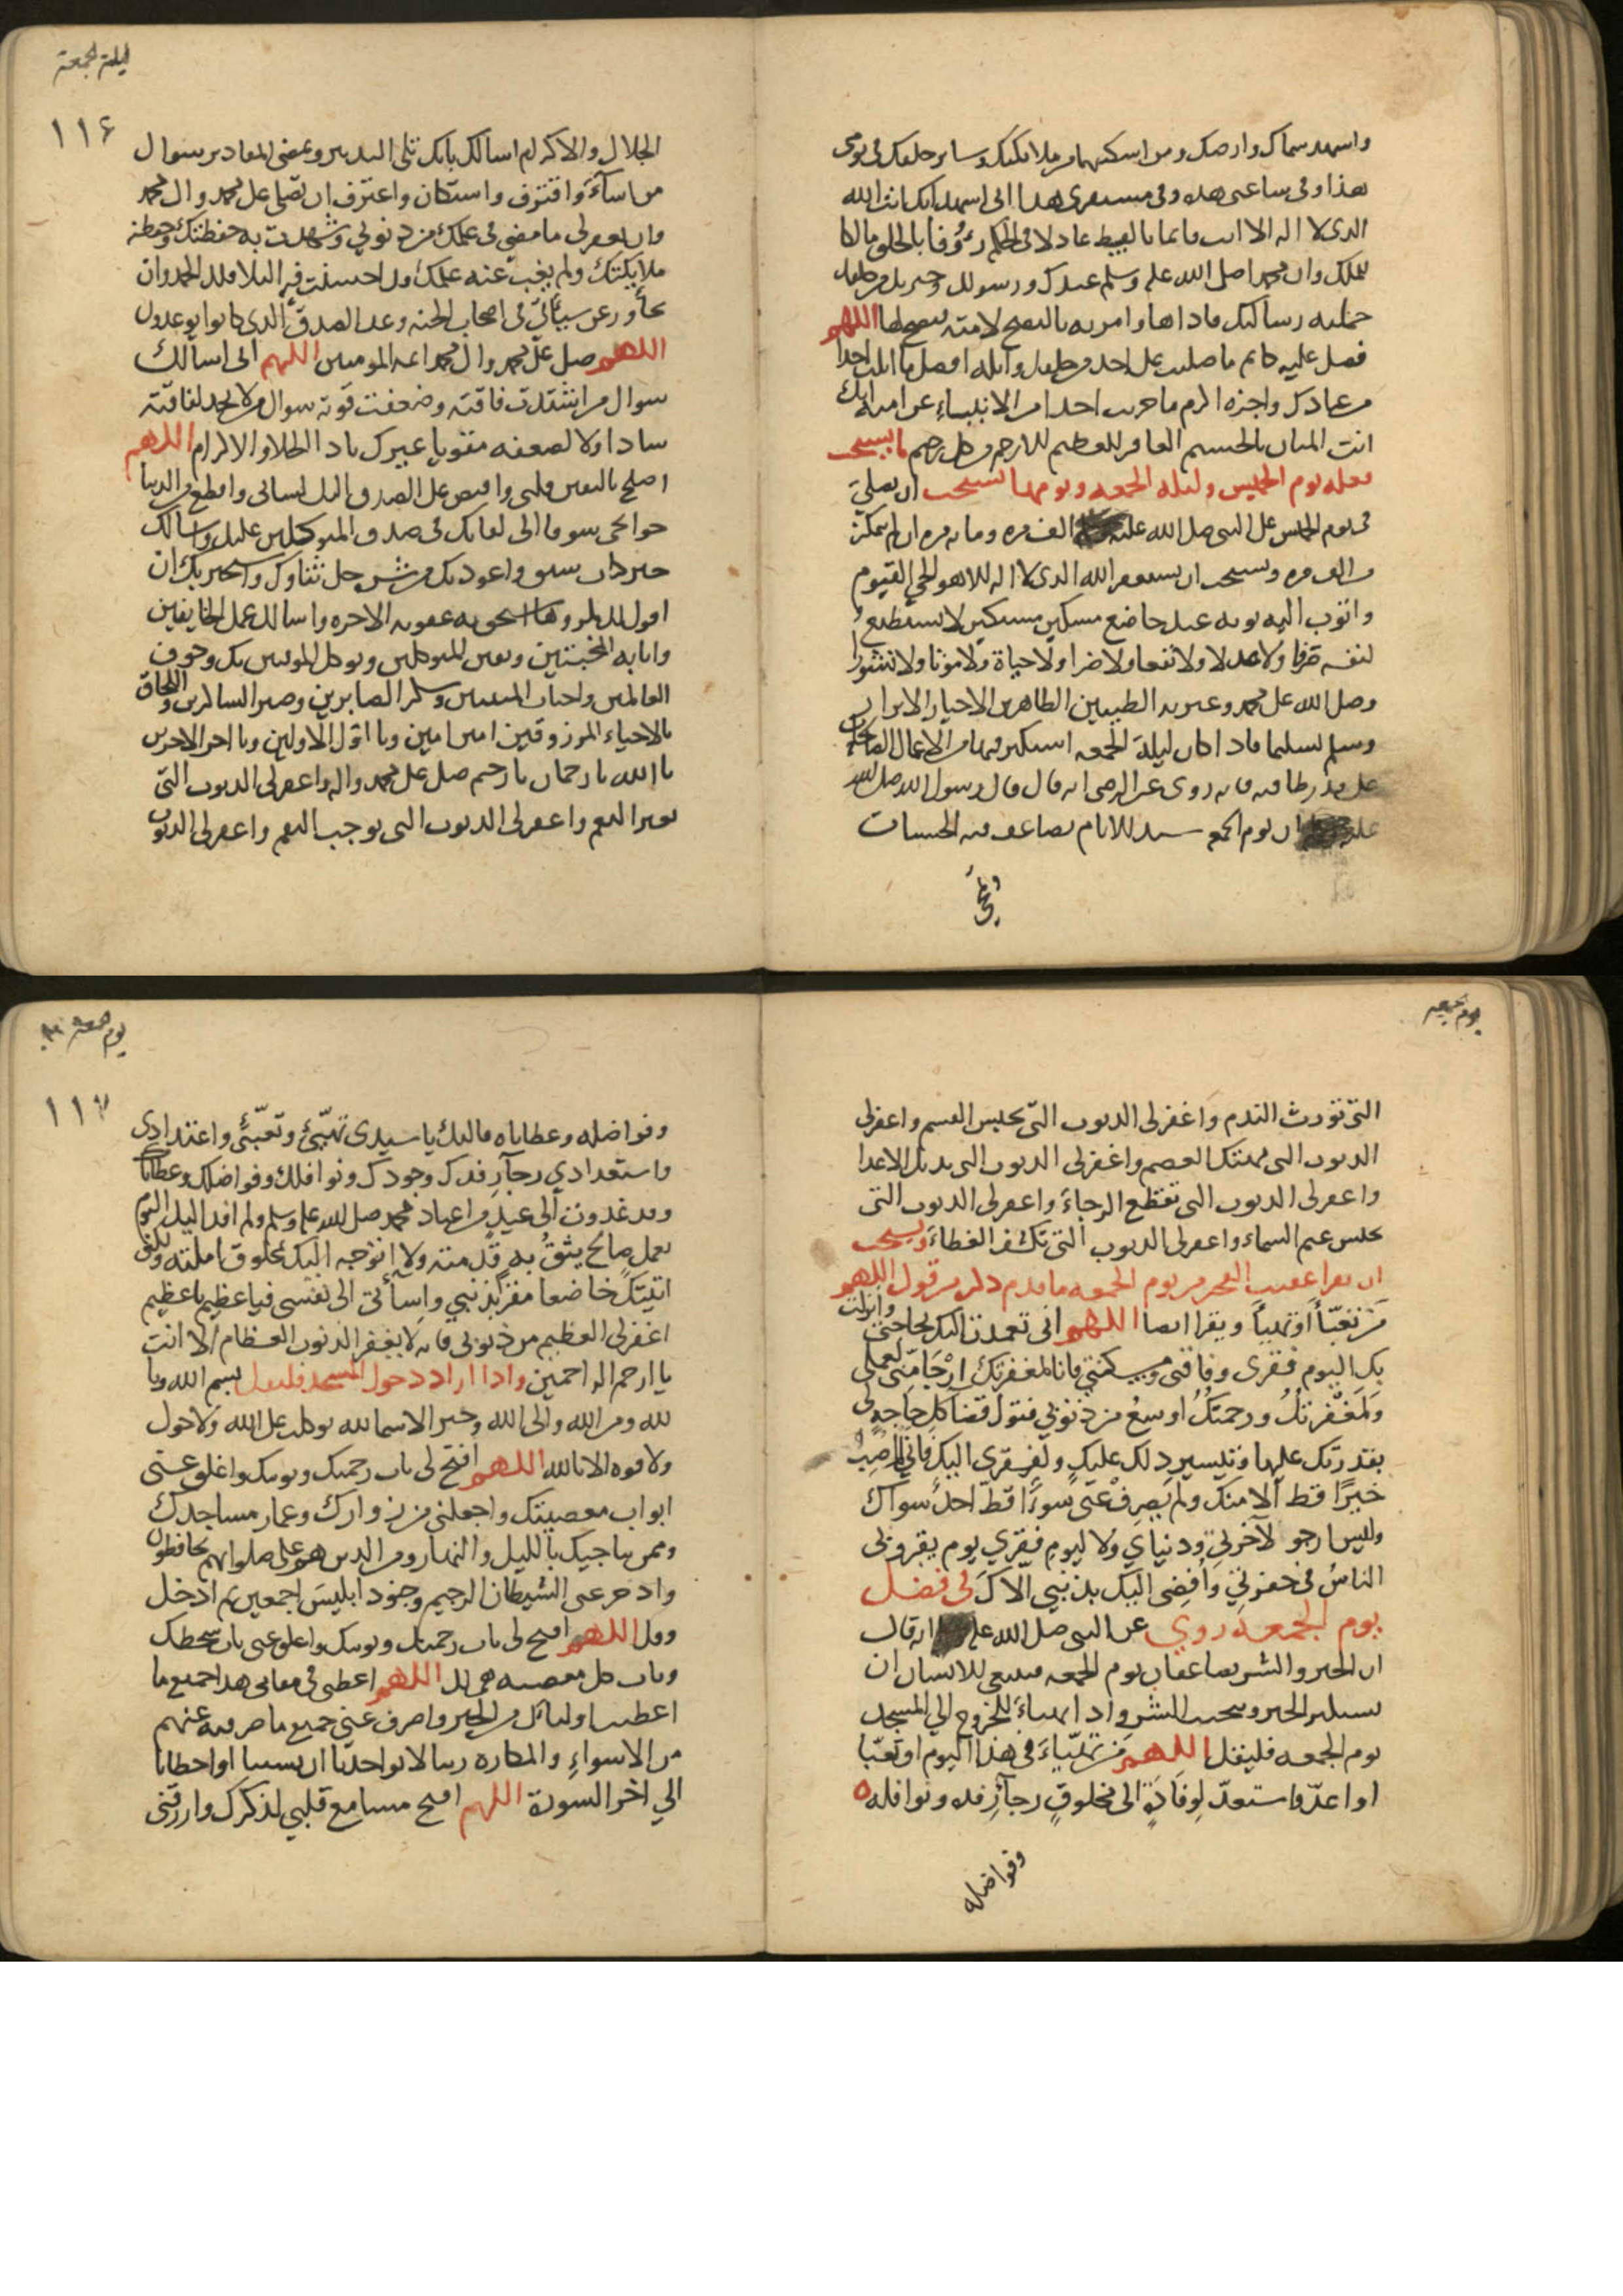 واشهد سماك وارضك ومن اسكنتهما من ملايكتك وساير خلقك في يومي
هذا وفي ساعتي هذه وفي مستقري هذا اني اشهد انك انت الله
الذي لا اله الا انت قايما بالقسط عادلا في الحكم رؤفا بالخلق مالكا
للملك وان محمدا صلى الله عليه وسلم عبدك ورسولك وخيرتك من خلقك
حملته رسالتك فاداها وامرته بالنصح لامته فنصح لها اللهم
فصل عليه كاتم ما صليت على احد من خلقك وانله افضل ما انلت احدا
من عبادك واجزه اكرم ما جزيت احدا من الانبياء عن امته انك
انت المنان بالجسيم الغافر للعظيم الارحم من كل رحيم ما يستحب
فعله يوم الخميس وليلة الجمعه ويومها يستحب ان يصلي
في يوم الخميس على النبي صلى الله عليه الف مره وما به مره ان لم يتمكن
من الف مره ويستحب ان يستغفر الله الذي لا اله الا هو الحي القيوم
واتوب اليه توبه عبد خاضع مسكين مستكين لا يستطيع
لنفسه صرفا ولا عدلا ولا نفعا ولا ضرا ولا حياة ولا موتا ولا نشورا
وصلى الله على محمد وعترته الطيبين الطاهرين الاخيار الابرار
وسلم تسليما فاذا كان ليلة الجمعه استكثر فيها من الاعمال الصالحات
على قدر طاقته فانه روي عن الرضي انه قال قال رسول الله صلى الله
عليه ان يوم الجمعه سيد الايام يضاعف فيه الحسنات
ليلة الجمعة
١١٦
الجلال والاكرام اسالك بانك تلي التدبير وتمضي المقادير سوال
من اساء واقترف واستكان واعترف ان تصلي على محمد وال محمد
وان تغفر لي ما مضى في علمك من ذنوبي وشهدت به حفظتك وحفظته
ملايكتك ولم يغب عنه علمك وقد احسنت فيه البلا فلك الحمد وان
تجاوز عن سيئاتي في اصحاب الجنه وعد الصدق الذي كانوا يوعدون
اللهم صل على محمد وال محمد ايمة المومنين اللهم اني اسالك
سوال من اشتدت فاقته وضعفت قوته سوال من لا يجد لفاقته
سادا ولا لضعفه مقويا غيرك ياذا الجلال والاكرام اللهم
اصلح باليقين قلبي واقبض على الصدق اليك لساني واقطع من الدنيا
حوايجي شوقا الى لقايك في صدق المتوكلين عليك واسالك
خير كتاب سبق واعوذ بك من شر جل ثناوك واستجير بك ان
اقول لك مكروها استحق به عقوبه الاخره واسالك عمل الخايفين
وانابه المخبتين ويقين المتوكلين وتوكل الموقنين بك وخوف
العالمين واخبات المنيبين وشكر الصابرين وصبر الشاكرين واللحاق
بالاحياء المرزوقين امين امين ويا اول الاولين ويا اخر الاخرين
يا الله يا رحمان يا رحيم صل على محمد واله واغفر لي الذنوب التي
تغير النعم واغفر لي الذنوب التي توجب النقم واغفر لي الذنوب
يوم جمعه
التي تورث الندم واغفر لي الذنوب التي تحبس القسم واغفر لي
الذنوب التي تهتك العصم واغفر لي الذنوب التي تديل الاعدا
واغفر لي الذنوب التي تقطع الرجاء واغفر لي الذنوب التي
تحبس غيم السماء واغفر لي الذنوب التي تكشف الغطاء ويستحب
ان يقرا عقيب الفجر من يوم الجمعه ما قدم ذكره من قول اللهم
من تعبا او تهيا ويقرا ايضا اللهم اني تعمدت اليك بحاجتي وانزلت
بك اليوم فقري وفاقتي ومسكنتي فانا لمغفرتك ارجا مني لعملي
ولمغفرتك ورحمتك اوسع من ذنوبي فتول قضا كل حاجه لي
بقدرتك عليها وتيسير ذلك عليك ولفقري اليك فاني لم اصب
خيرا قط الا منك ولم يصرف عني سوءا قط احد سواك
وليس ارجو لاخرتي ودنياي ولا ليوم فقري يوم يفردني
الناس في حفرتي وافضي اليك بذنبي الاك في فضل
يوم الجمعه روي عن النبي صلى الله عليه انه قال
ان الخير والشر يضاعفان يوم الجمعه فينبغي للانسان ان
يستكثر الخير ويجتنب الشر واذا تهياء للخروج الي المسجد
يوم الجمعه فليقل اللهم من تهياء في هذا اليوم او تعبا
او اعد واستعد لوفادة الى مخلوق رجاء رفده ونوافله
وفواضله
يوم جمعه
١١٧
وفواضله وعطاياه فاليك يا سيدي تهيئي وتعبئي واعتدادي
واستعدادي رجاء رفدك وجودك ونوافلك وفواضلك وعطاياك
وقد غدوت الى عيد من اعياد محمد صلى الله عليه وسلم ولم افد اليك اليوم
بعمل صالح يثق به قدمته ولا اتوجه اليك بمخلوق املته ولكني
اتيتك خاضعا مقرا بذنبي واسأتي الى نفسي فيا عظيم يا عظيم
اغفر لي العظيم من ذنوبي فانه لا يغفر الذنوب العظام الا انت
يا ارحم الراحمين واذا اراد دخول المسجد فليقل بسم الله وبا
لله ومن الله والى الله وخير الاسما لله توكلت على الله ولا حول
ولا قوه الا بالله اللهم افتح لي باب رحمتك وتوبتك واغلق عني
ابواب معصيتك واجعلني من زوارك وعمار مساجدك
وممن يناجيك بالليل والنهار ومن الذين هم على صلواتهم يحافظون
وادحر عني الشيطان الرجيم وجنود ابليس اجمعين ثم ادخل
وقل اللهم افتح لي باب رحمتك وتوبتك واغلق عني باب سخطك
وباب كل معصيه هي لك اللهم اعطني في مقامي هذا جميع ما
اعطيت اوليائك من الخير واصرف عني جميع ما صرفته عنهم
من الاسواء والمكاره ربنا لا تواخذنا ان نسينا او اخطانا
الي اخر السورة اللهم افتح مسامع قلبي لذكرك وارزقني